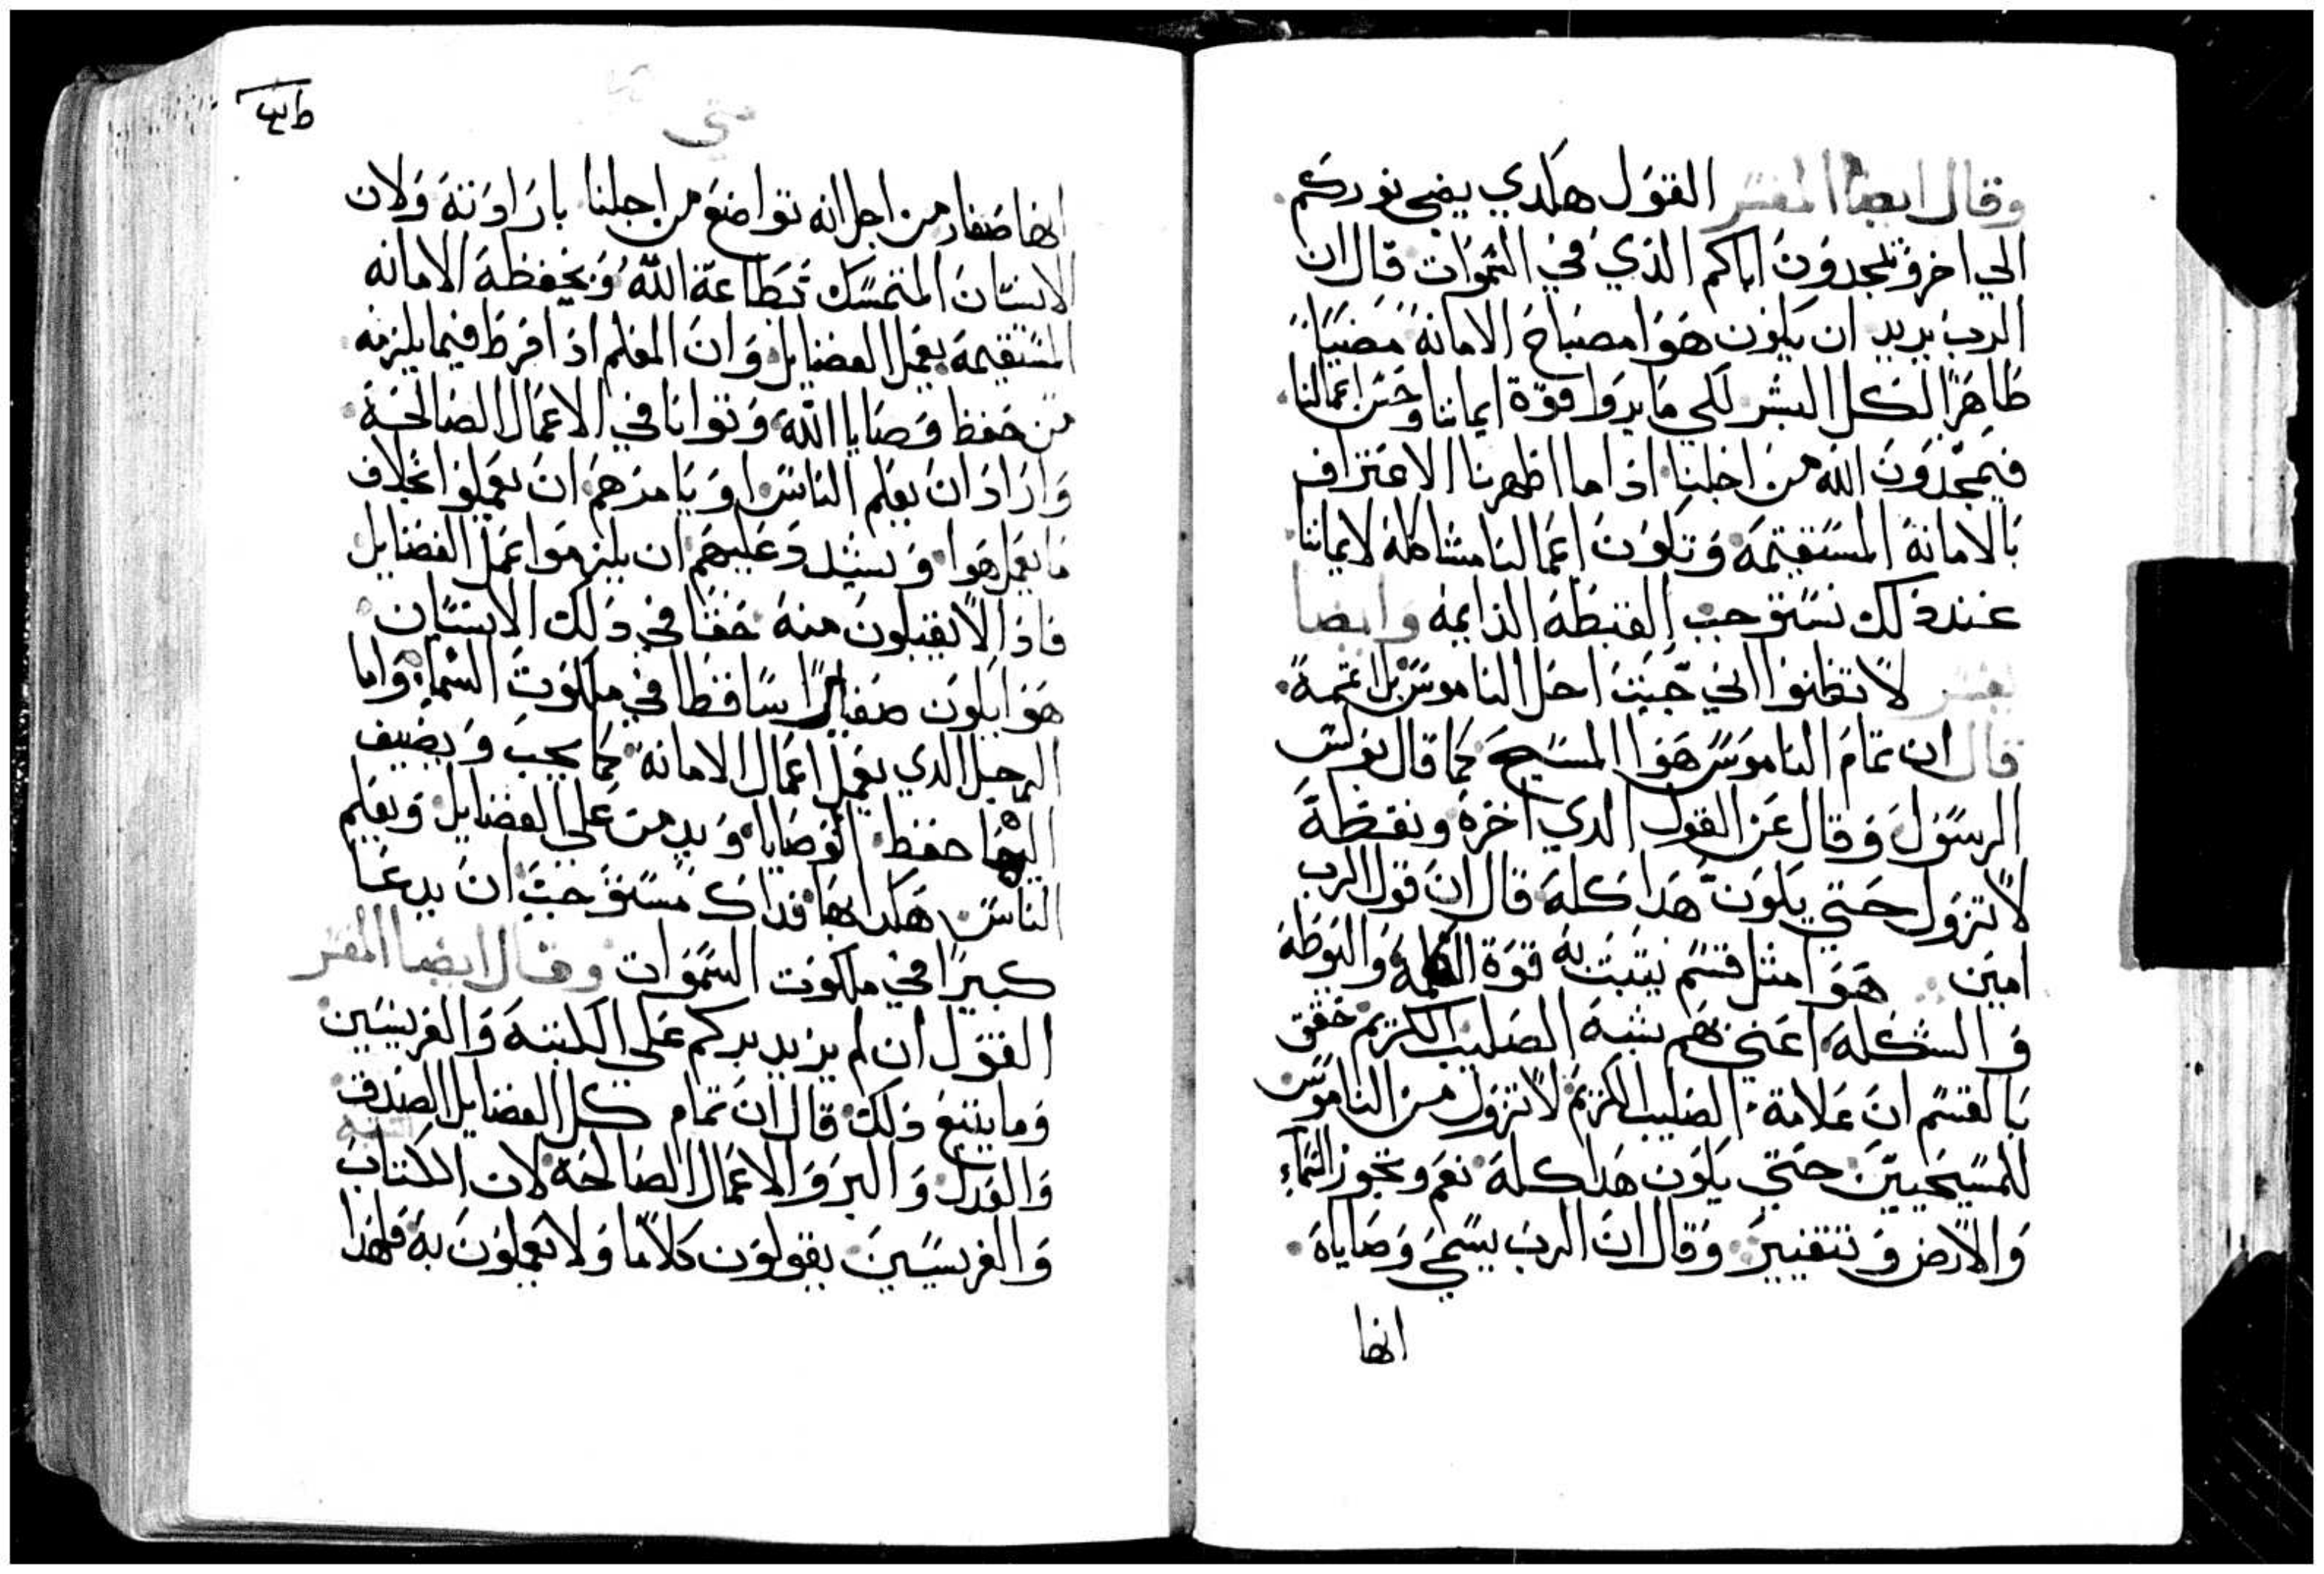 وقال ايضا المفسر القول هكدي يضي نوركم
الي اخر وتمجدون اباكم الذي في السموات قال ان
الرب يريد ان يكون هوا مصباح الامانة مضيًا
ظاهرًا لكل البشر لكي ما يروا قوة ايماننا وحسن اعمالنا
فيمجدون الله من اجلنا اذا ما اظهرنا الاعتراف
بالامانة المستقيمة وتكون اعمالنا مشاكله لايماننا
عند ذلك نستوجب الغبطة الدايمه وايضا
يفسر لا تظنوا اني جيت احل الناموس بل اتممة
قال ان تمام الناموس هوا المسيح كما قال بولس
الرسول وقال عن القول الدي اخره ونقطة
لا تزول حتي يكون هدا كله قال ان قول الرب
امين هوا مثل قسم يثبت به قوة الكلمة واليوطه
والشكلة اعني بهم شبه الصليب الكريم حقق
بالقسم ان علامة الصليب الكريم لا تزول من الناموس
للمسيحيين حتي يكون هدا كلة نعم وتجوز السماء
والارض وتتغير وقال ان الرب يسمي وصاياه
انها
متي
انها صغار من اجل انه تواضع من اجلنا بارادته ولان
الانسان المتمسك بطاعة الله وبحفظة الامانه
المستقيمة يعمل الفضايل وان المعلم اذا فرط فيما يلزمه
من حفظ وصايا الله وتوانا في الاعمال الصالحة
واراد ان يعلم الناس او يامرهم ان يعملوا بخلاف
ما يعمل هوا ويشدد عليهم ان يلزموا عمل الفضايل
فاذا لا يقبلون منه حقًا في ذلك الانسان
هوا يكون صغيرًا ساقطا في ملكوت السماء واما
الرجل الدي يعمل اعمال الامانة كما يجب ويضيف
اليها حفظ الوصايا ويدمن علي الفضايل ويعلم
الناس هكدا بها فداك مستوجب ان يدعا
كبيرا في ملكوت السموات وقال ايضا المفسر
القول ان لم يزيد بركم علي الكتبة والفريسين
وما يتبع ذلك قال ان تمام كل الفضايل الصدق
والعدل والبر والاعمال الصالحة لان الكتاب
والفريسيين يقولون كلامًا ولا يعملون به فلهذا